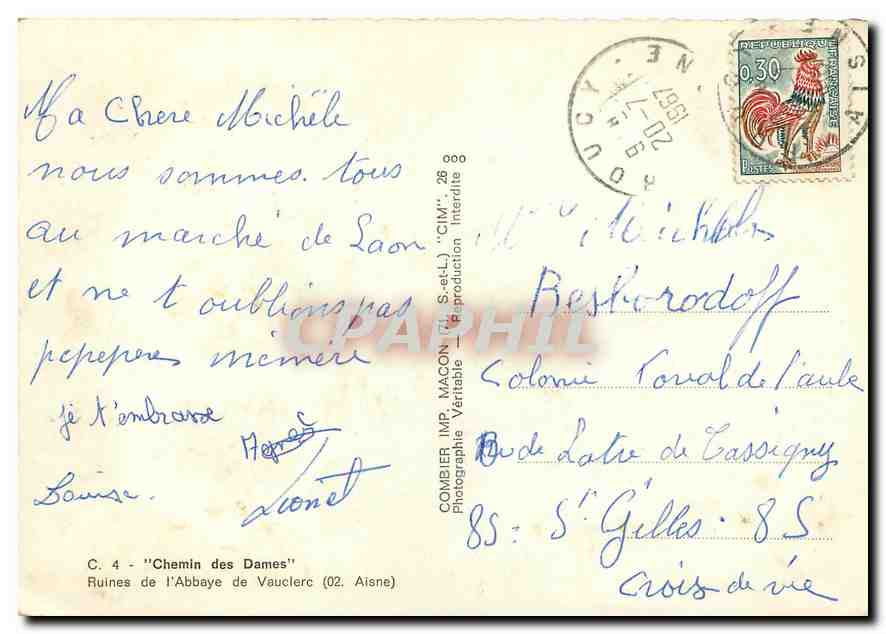 Ma Chere Michèle
nous sommes tous
au marché de Laon
et ne t oublions pas
pepepere mémère
je t'embrasse
Agnès
Louise.
Lionel
C. 4 - "Chemin des Dames"
Ruines de l'Abbaye de Vauclerc (02. Aisne)
COMBIER IMP. MACON (71. S.-et-L.) "CIM". 26 000
Photographie Véritable — Reproduction Interdite
9 H.
20-7
1967
REPUBLIQUE FRANÇAISE
0,30
POSTES
Michèle
Besborodoff
Colonie de l'aube
Rue de Latre de Tassigny
85 = St Gilles. 85
Croix de vie
CPAPHIL